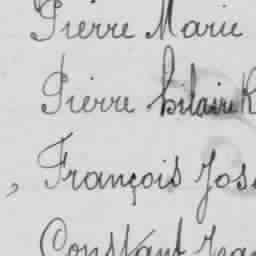 Pierre Marie
Pierre hilaire
, François Jos
Constant